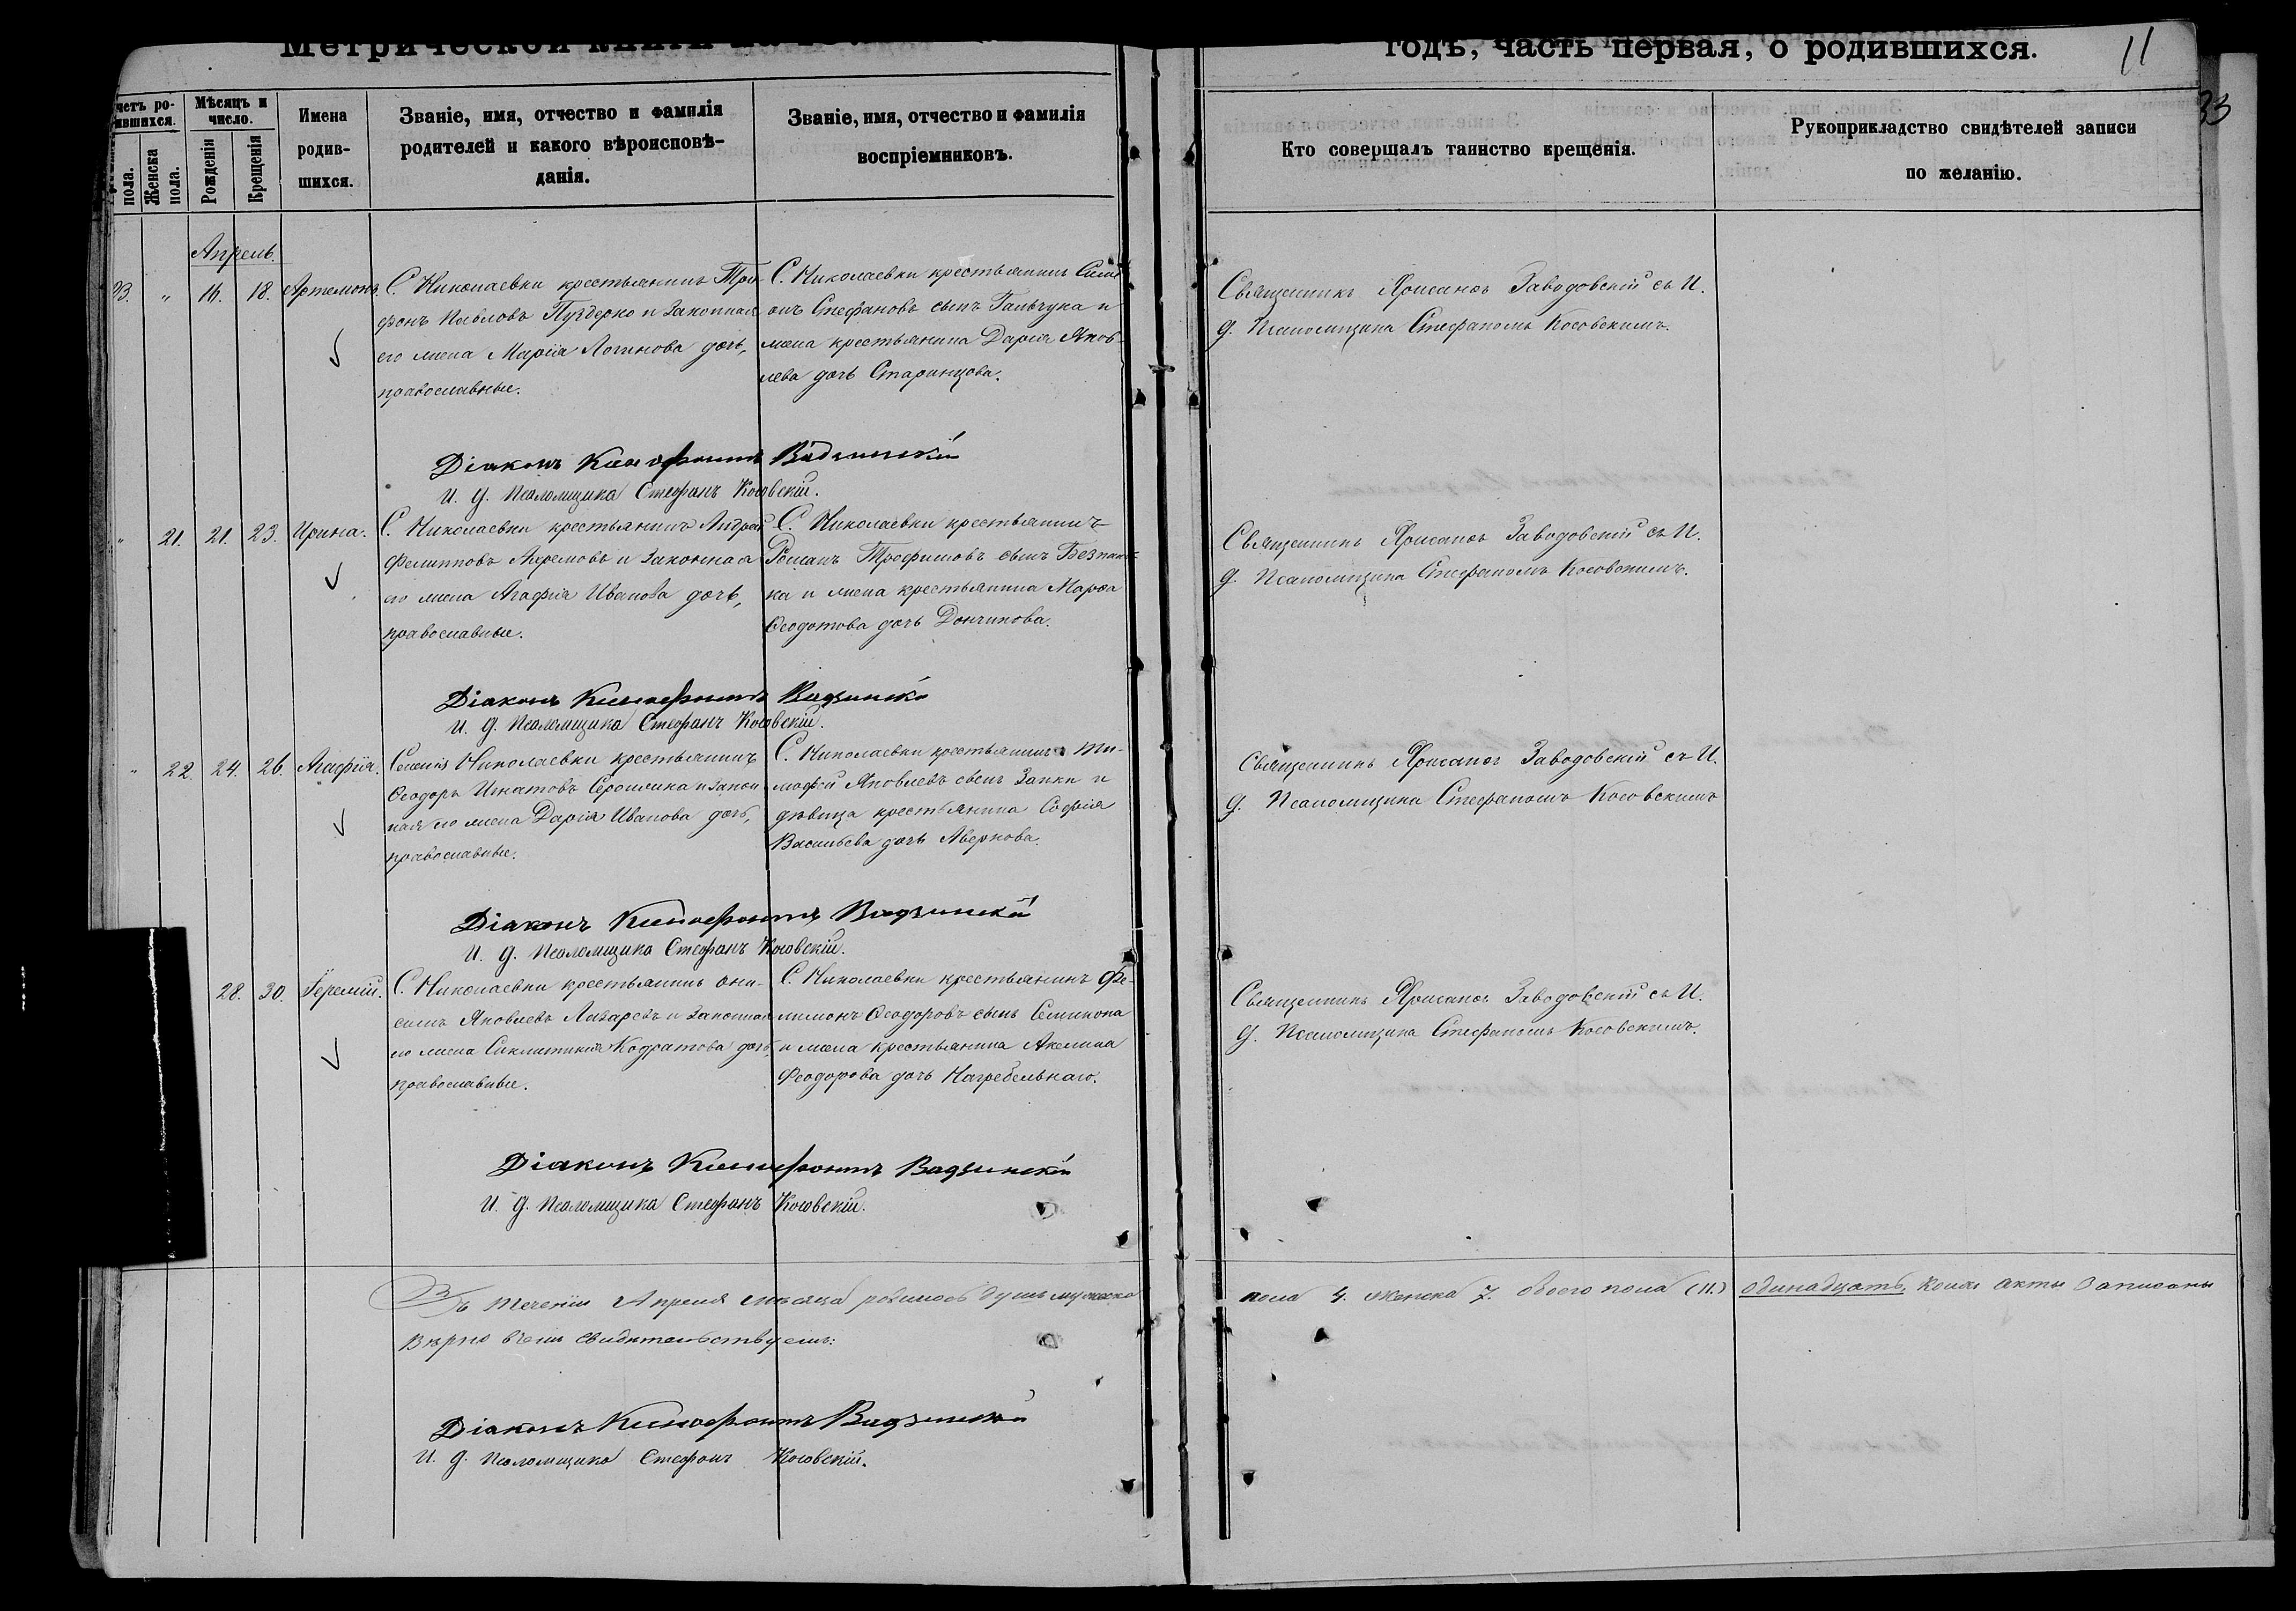 годъ, часть первая, о родившихся.
11
33
Мѣсяцъ и число.
Рожденія
Крещенія
Женска пола.
пола.
Имена
родив-
шихся.
Званіе, имя, отчество и фамилія
родителей и какого вѣроисповѣ-
данія.
Званіе, имя, отчество и фамилія
воспріемниковъ.
Кто совершалъ таинство крещенія.
Рукоприкладство свидѣтелей записи
по желанію.
Апрель.
" 16. 18. Артемонъ.
С. Николаевки крестьянинъ Три-
фонъ Павловъ Пугдерко и законная
его жена Марія Логинова дочь,
православные.
С. Николаевки крестьянинъ
Стефановъ сынъ Гальчука и
жена крестьянина Дарія Яков-
лева дочь Старинцова.
Священникъ Заводовскій съ И.
д. Псаломщика Стефаномъ Косовскимъ.
Діаконъ Ксенофонтъ Вадзинскій
И. д. Псаломщика Стефанъ Косовскій.
" 21. 21. 23. Ирина.
С. Николаевки крестьянинъ Андрей
Филипповъ Ахремовъ и законная
его жена Агафія Иванова дочь,
православные.
С. Николаевки крестьянинъ
Романъ Трофимовъ сынъ
ка и жена крестьянина Марѳа
Ѳеодотова дочь Дончикова.
Священникъ Заводовскій съ И.
д. Псаломщика Стефаномъ Косовскимъ.
Діаконъ Ксенофонтъ Вадзинскій
И. д. Псаломщика Стефанъ Косовскій.
" 22. 24. 26. Агафія.
Селенія Николаевки крестьянинъ
Ѳеодоръ Игнатовъ и закон-
ная его жена Дарія Иванова дочь,
православные.
С. Николаевки крестьянинъ Ти-
мофей Яковлевъ сынъ Заики и
дѣвица крестьянина Софія
Васильева дочь Аверкова.
Священникъ Заводовскій съ И.
д. Псаломщика Стефаномъ Косовскимъ
Діаконъ Ксенофонтъ Вадзинскій
И. д. Псаломщика Стефанъ Косовскій.
28. 30. Іеремій.
С. Николаевки крестьянинъ Они-
симъ Яковлевъ Лизаревъ и законная
его жена Синклитикія Кодратова дочь,
православные.
С. Николаевки крестьянинъ Фи-
лимонъ Ѳеодоровъ сынъ Семикона
и жена крестьянина Акелина
Феодорова дочь Нагребельнаго.
Священникъ Заводовскій съ И.
д. Псаломщика Стефаномъ Косовскимъ.
Діаконъ Ксенофонтъ Вадзинскій
И. д. Псаломщика Стефанъ Косовскій.
Въ теченіи Апреля мѣсяца родилось душъ мужеска пола 4. женска 7. обоего пола (11.) одинадцать, коихъ акты записаны
вѣрно въ чемъ свидѣтельствуемъ:
Діаконъ Ксенофонтъ Вадзинскій
И. д. Псаломщика Стефанъ Косовскій.